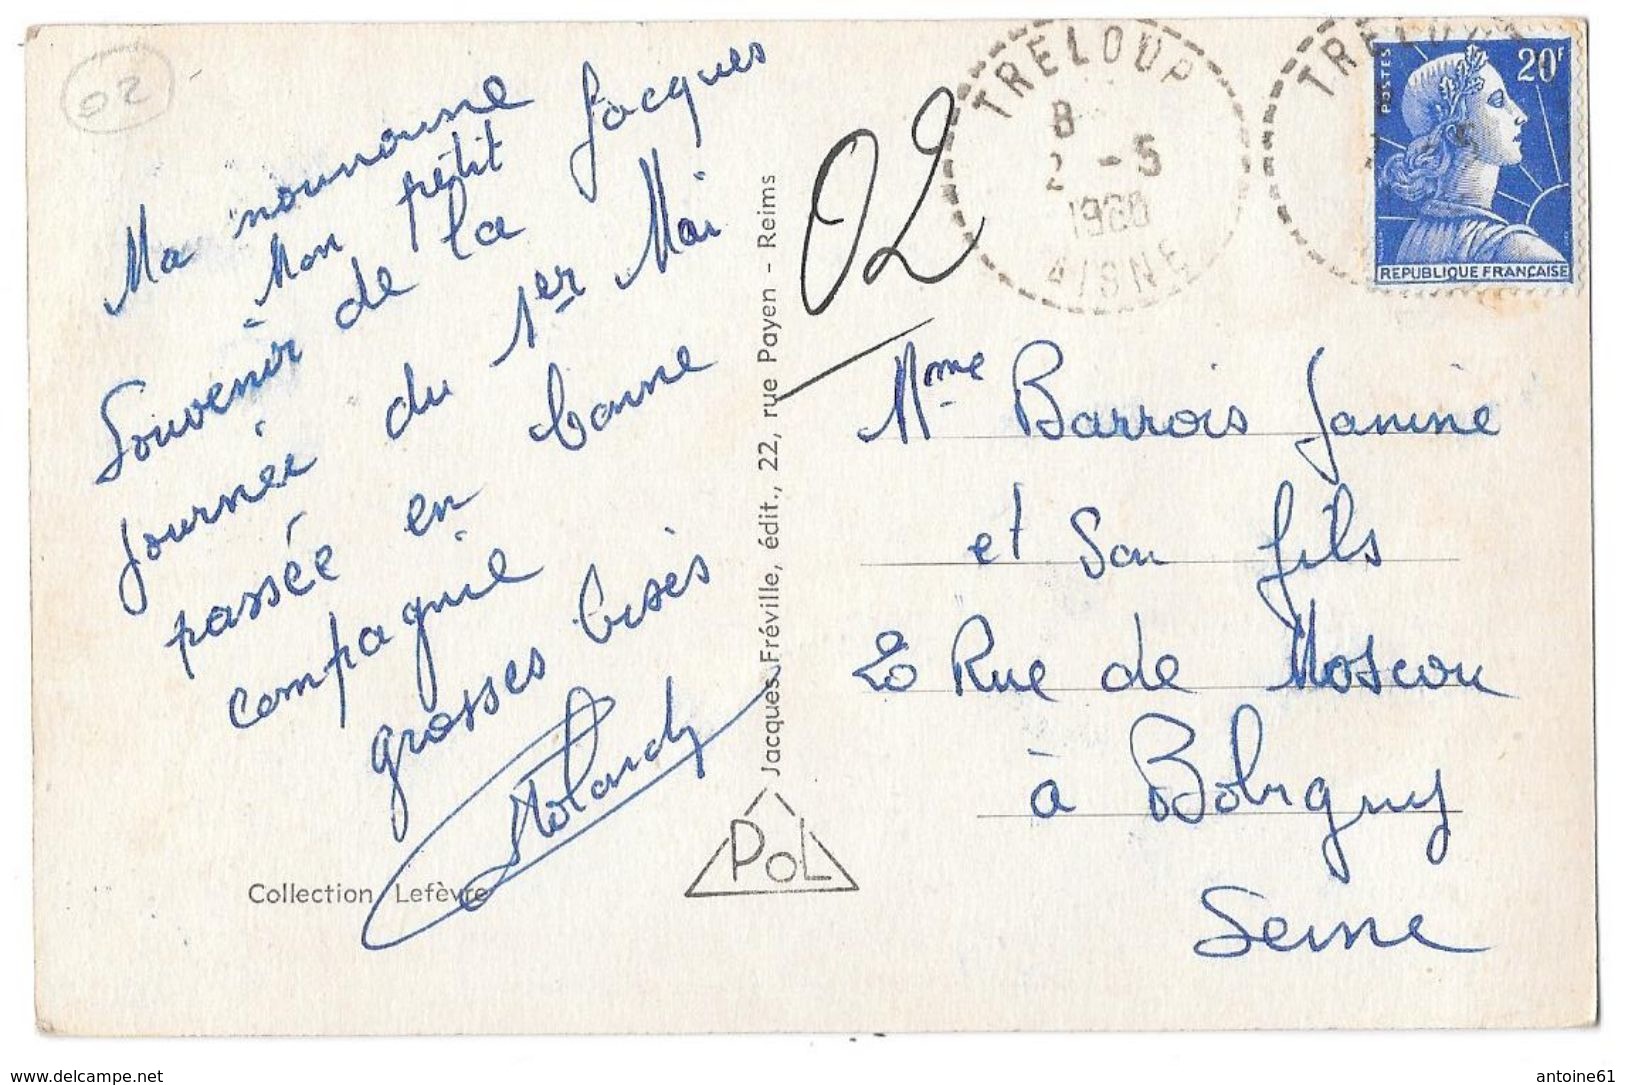 02
Ma nounoune
Mon petit Jacques
Souvenir de la
journée du 1er Mai
passée en bonne
compagnie
grosses bises
Collection Lefèvre
Jacques Fréville, édit., 22, rue Payen - Reims
POL
02
TRELOUP
8
2 - 5
1960
AISNE
TRELOUP
- 5
POSTES
20F
REPUBLIQUE FRANÇAISE
Mme Barrois Janine
et Son fils
20 Rue de Moscou
à Bobigny
Seine
www.delcampe.net
antoine61